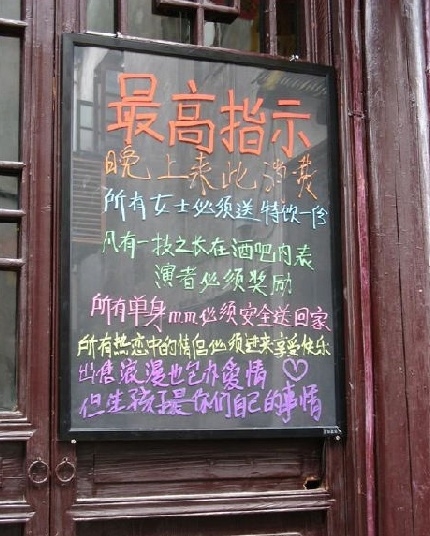 最高指示
晚上来此消费
所有女士必须送特饮一份
凡有一技之长在酒吧内表
演者必须奖励
所有单身mm必须安全送回家
所有热恋中的情侣必须进来享受快乐
出售浪漫也包办爱情
但生孩子是你们自己的事情